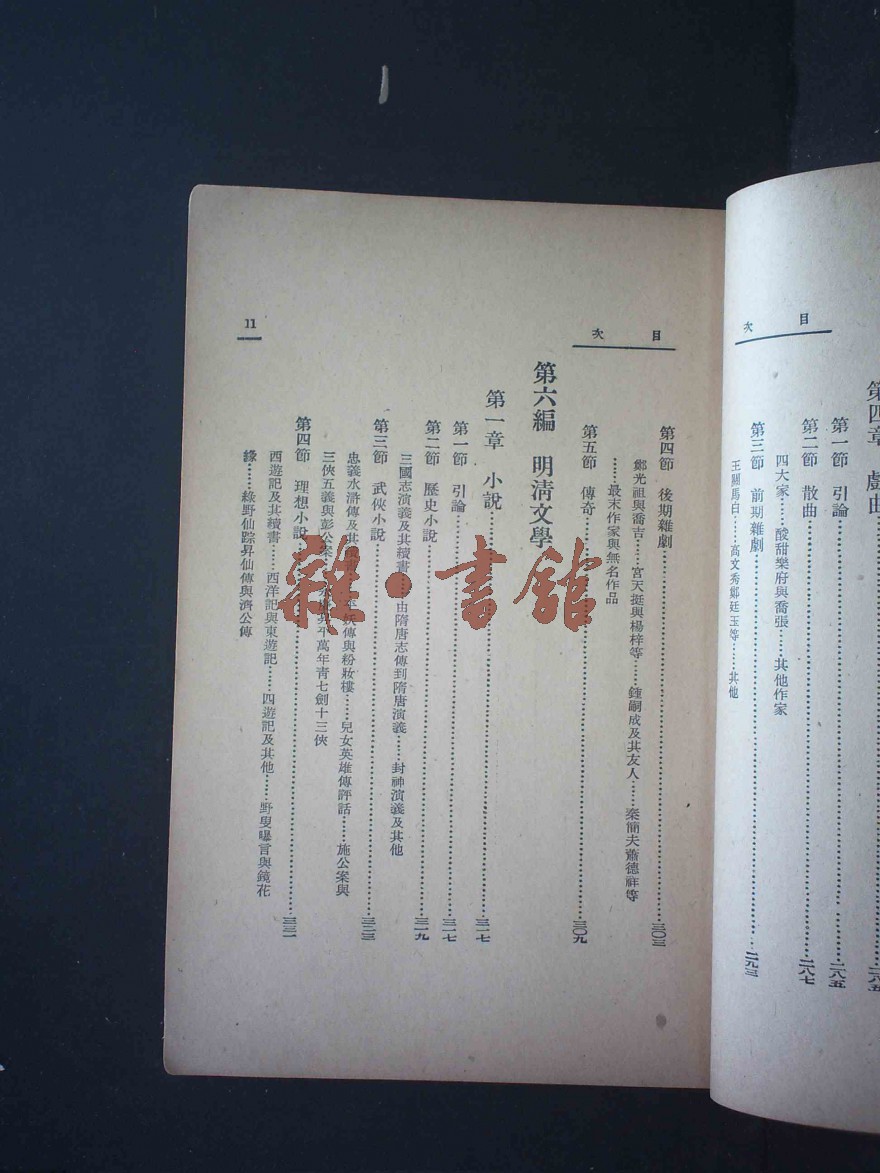 目次
第四章 戲曲……二八五
第一節 引論……二八五
第二節 散曲……二八七
四大家……酸甜樂府與喬張……其他作家
第三節 前期雜劇……二九三
王關馬白……高文秀鄭廷玉等……其他
目次
11
第四節 後期雜劇……三〇三
鄭光祖與喬吉……宮天挺與楊梓等……鍾嗣成及其友人……秦簡夫蕭德祥等
……最末作家與無名作品
第五節 傳奇……三〇九
第六編 明清文學
第一章 小說……三一七
第一節 引論……三一七
第二節 歷史小說……三一九
三國志演義及其續書……由隋唐志傳到隋唐演義……封神演義及其他
第三節 武俠小說……三二三
忠義水滸傳及其續書……平妖傳與粉妝樓……兒女英雄傳評話……施公案與
三俠五義與彭公案……昇平萬年青七劍十三俠
第四節 理想小說……三三一
西遊記及其續書……西洋記與東遊記……四遊記及其他……野叟曝言與鏡花
緣……綠野仙踪昇仙傳與濟公傳
雜·書館